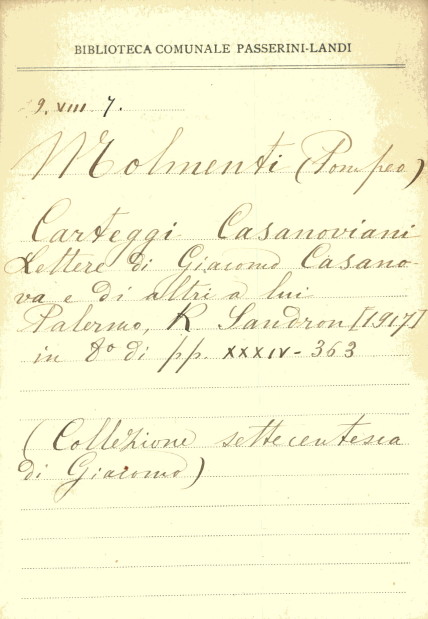 BIBLIOTECA COMUNALE PASSERINI-LANDI
9. XIII 7.
Molmenti (Pompeo)
Carteggi Casanoviani
Lettere di Giacomo Casano-
va e di altri a lui
Palermo, R Sandron [1917]
in 8° di pp. XXXIV - 363
(Collezione settecentesca
di Giacomo)